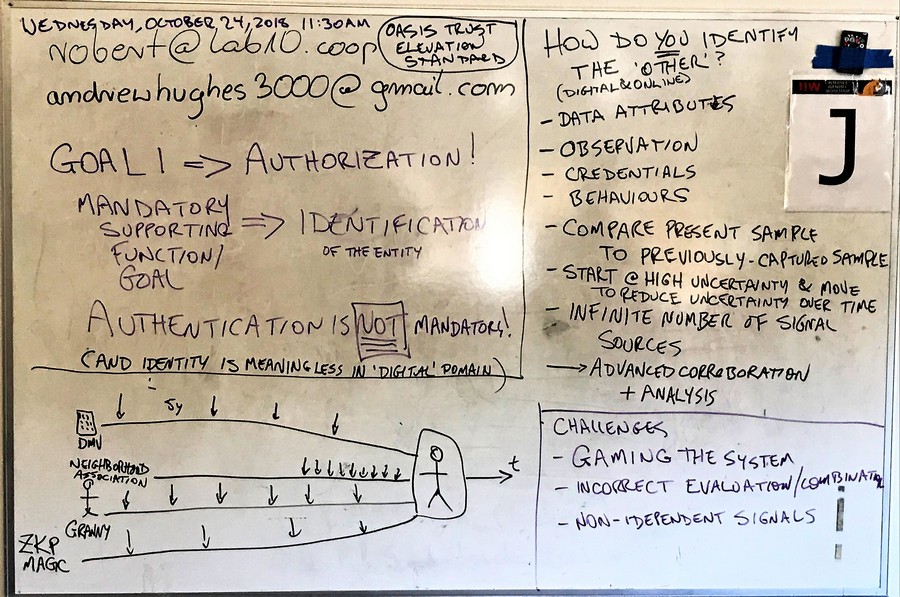 WEDNESDAY, OCTOBER 24, 2018 11:30AM
nobert@lab10.coop
andrewhughes3000@gmail.com
OASIS TRUST
ELEVATION
STANDARD
GOAL 1 => AUTHORIZATION!
MANDATORY
SUPPORTING
FUNCTION/
GOAL
=> IDENTIFICATION
OF THE ENTITY
AUTHENTICATION IS NOT MANDATORY!
(AND IDENTITY IS MEANINGLESS IN 'DIGITAL' DOMAIN)
5y
DMV
NEIGHBORHOOD
ASSOCIATION
GRANNY
ZKP
MAGIC
t
HOW DO YOU IDENTIFY
THE 'OTHER'?
(DIGITAL & ONLINE)
- DATA ATTRIBUTES
- OBSERVATION
- CREDENTIALS
- BEHAVIOURS
- COMPARE PRESENT SAMPLE
TO PREVIOUSLY-CAPTURED SAMPLE
- START @ HIGH UNCERTAINTY & MOVE
TO REDUCE UNCERTAINTY OVER TIME
- INFINITE NUMBER OF SIGNAL
SOURCES
→ ADVANCED CORROBORATION
+ ANALYSIS
IIW
J
CHALLENGES
- GAMING THE SYSTEM
- INCORRECT EVALUATION/COMBINATION
- NON-IDEPENDENT SIGNALS